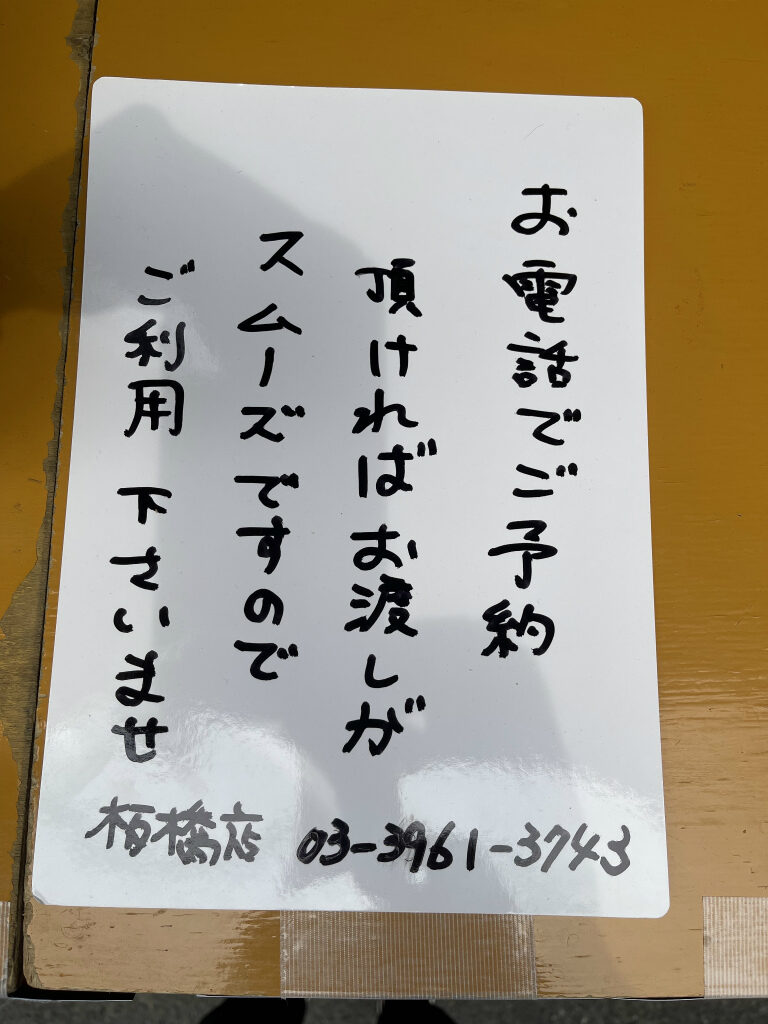 お電話でご予約
頂ければお渡しが
スムーズですので
ご利用下さいませ
板橋店 03-3961-3743